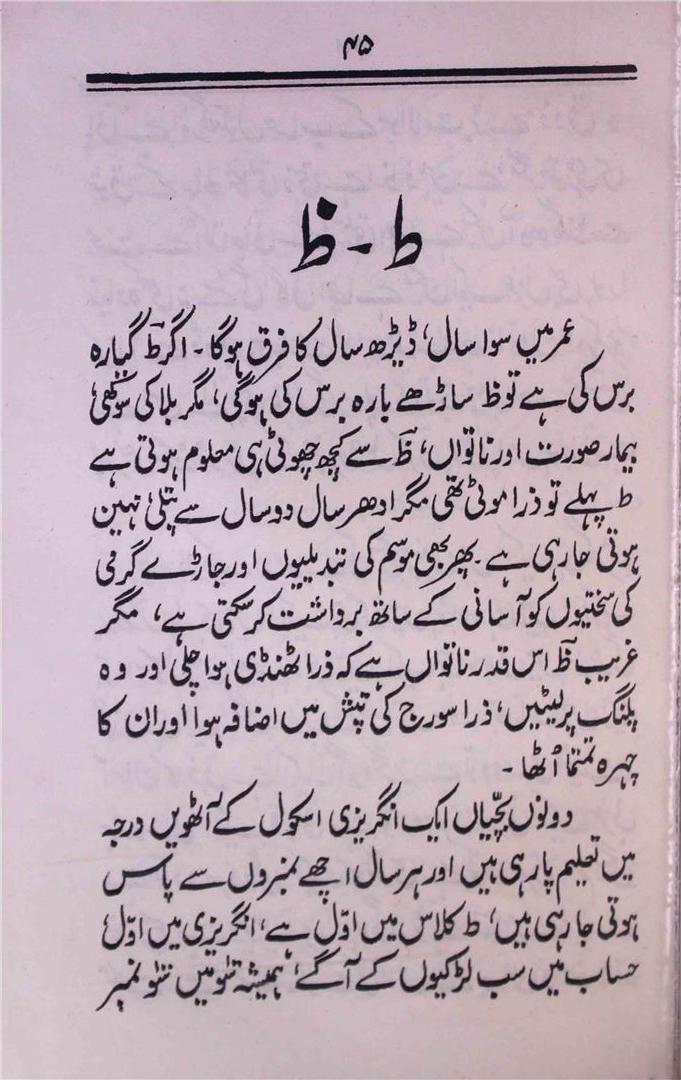 ۴۵
ط - ظ
عمر میں سوا سال، ڈیڑھ سال کا فرق ہوگا ۔ اگر ط گیارہ
برس کی ہے تو ظ ساڑھے بارہ برس کی ہوگی، مگر بلا کی سوکھی
بیمار صورت اور ناتواں، ظ سے کچھ چھوٹی ہی معلوم ہوتی ہے
ط پہلے تو ذرا موٹی تھی مگر ادھر سال دو سال سے پتلی نہین
ہوتی جارہی ہے پھر بھی موسم کی تبدیلیوں اور جاڑے گرمی
کی سختیوں کو آسانی کے ساتھ برداشت کرسکتی ہے، مگر
غریب ظ اس قدر ناتواں ہے کہ ذرا ٹھنڈی ہوا چلی اور وہ
پلنگ پر لیٹیں، ذرا سورج کی تپش میں اضافہ ہوا اور ان کا
چہرہ تمتما اُٹھا ۔
دونوں بچّیاں ایک انگریزی اسکول کے آٹھویں درجہ
میں تعلیم پارہی ہیں اور ہر سال اچھے نمبروں سے پاس
ہوتی جارہی ہیں، ط کلاس میں اوّل ہے، انگریزی میں اوّل
حساب میں سب لڑکیوں کے آگے، ہمیشہ سَو میں سَو نمبر